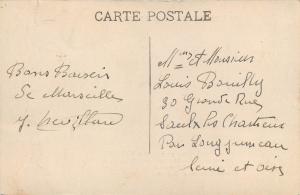 CARTE POSTALE
Bons Baisers
De Marseille
Mme et Monsieur
Louis Bouilly
30 Grande Rue
Saulx les Chartreux
Par Longjumeau
Seine et Oise